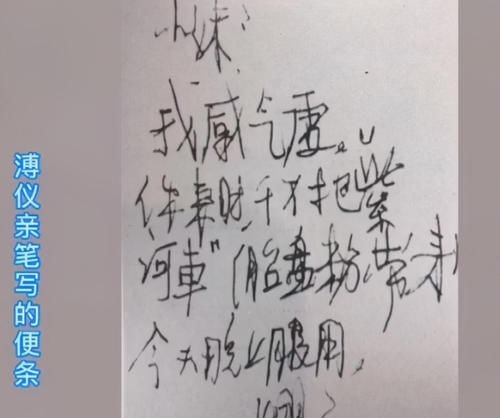 溥仪亲笔写的便条
小妹：
我感气虚。
你来时，千万把“紫
河車”（胎盘粉）带来，
今天晚上服用。